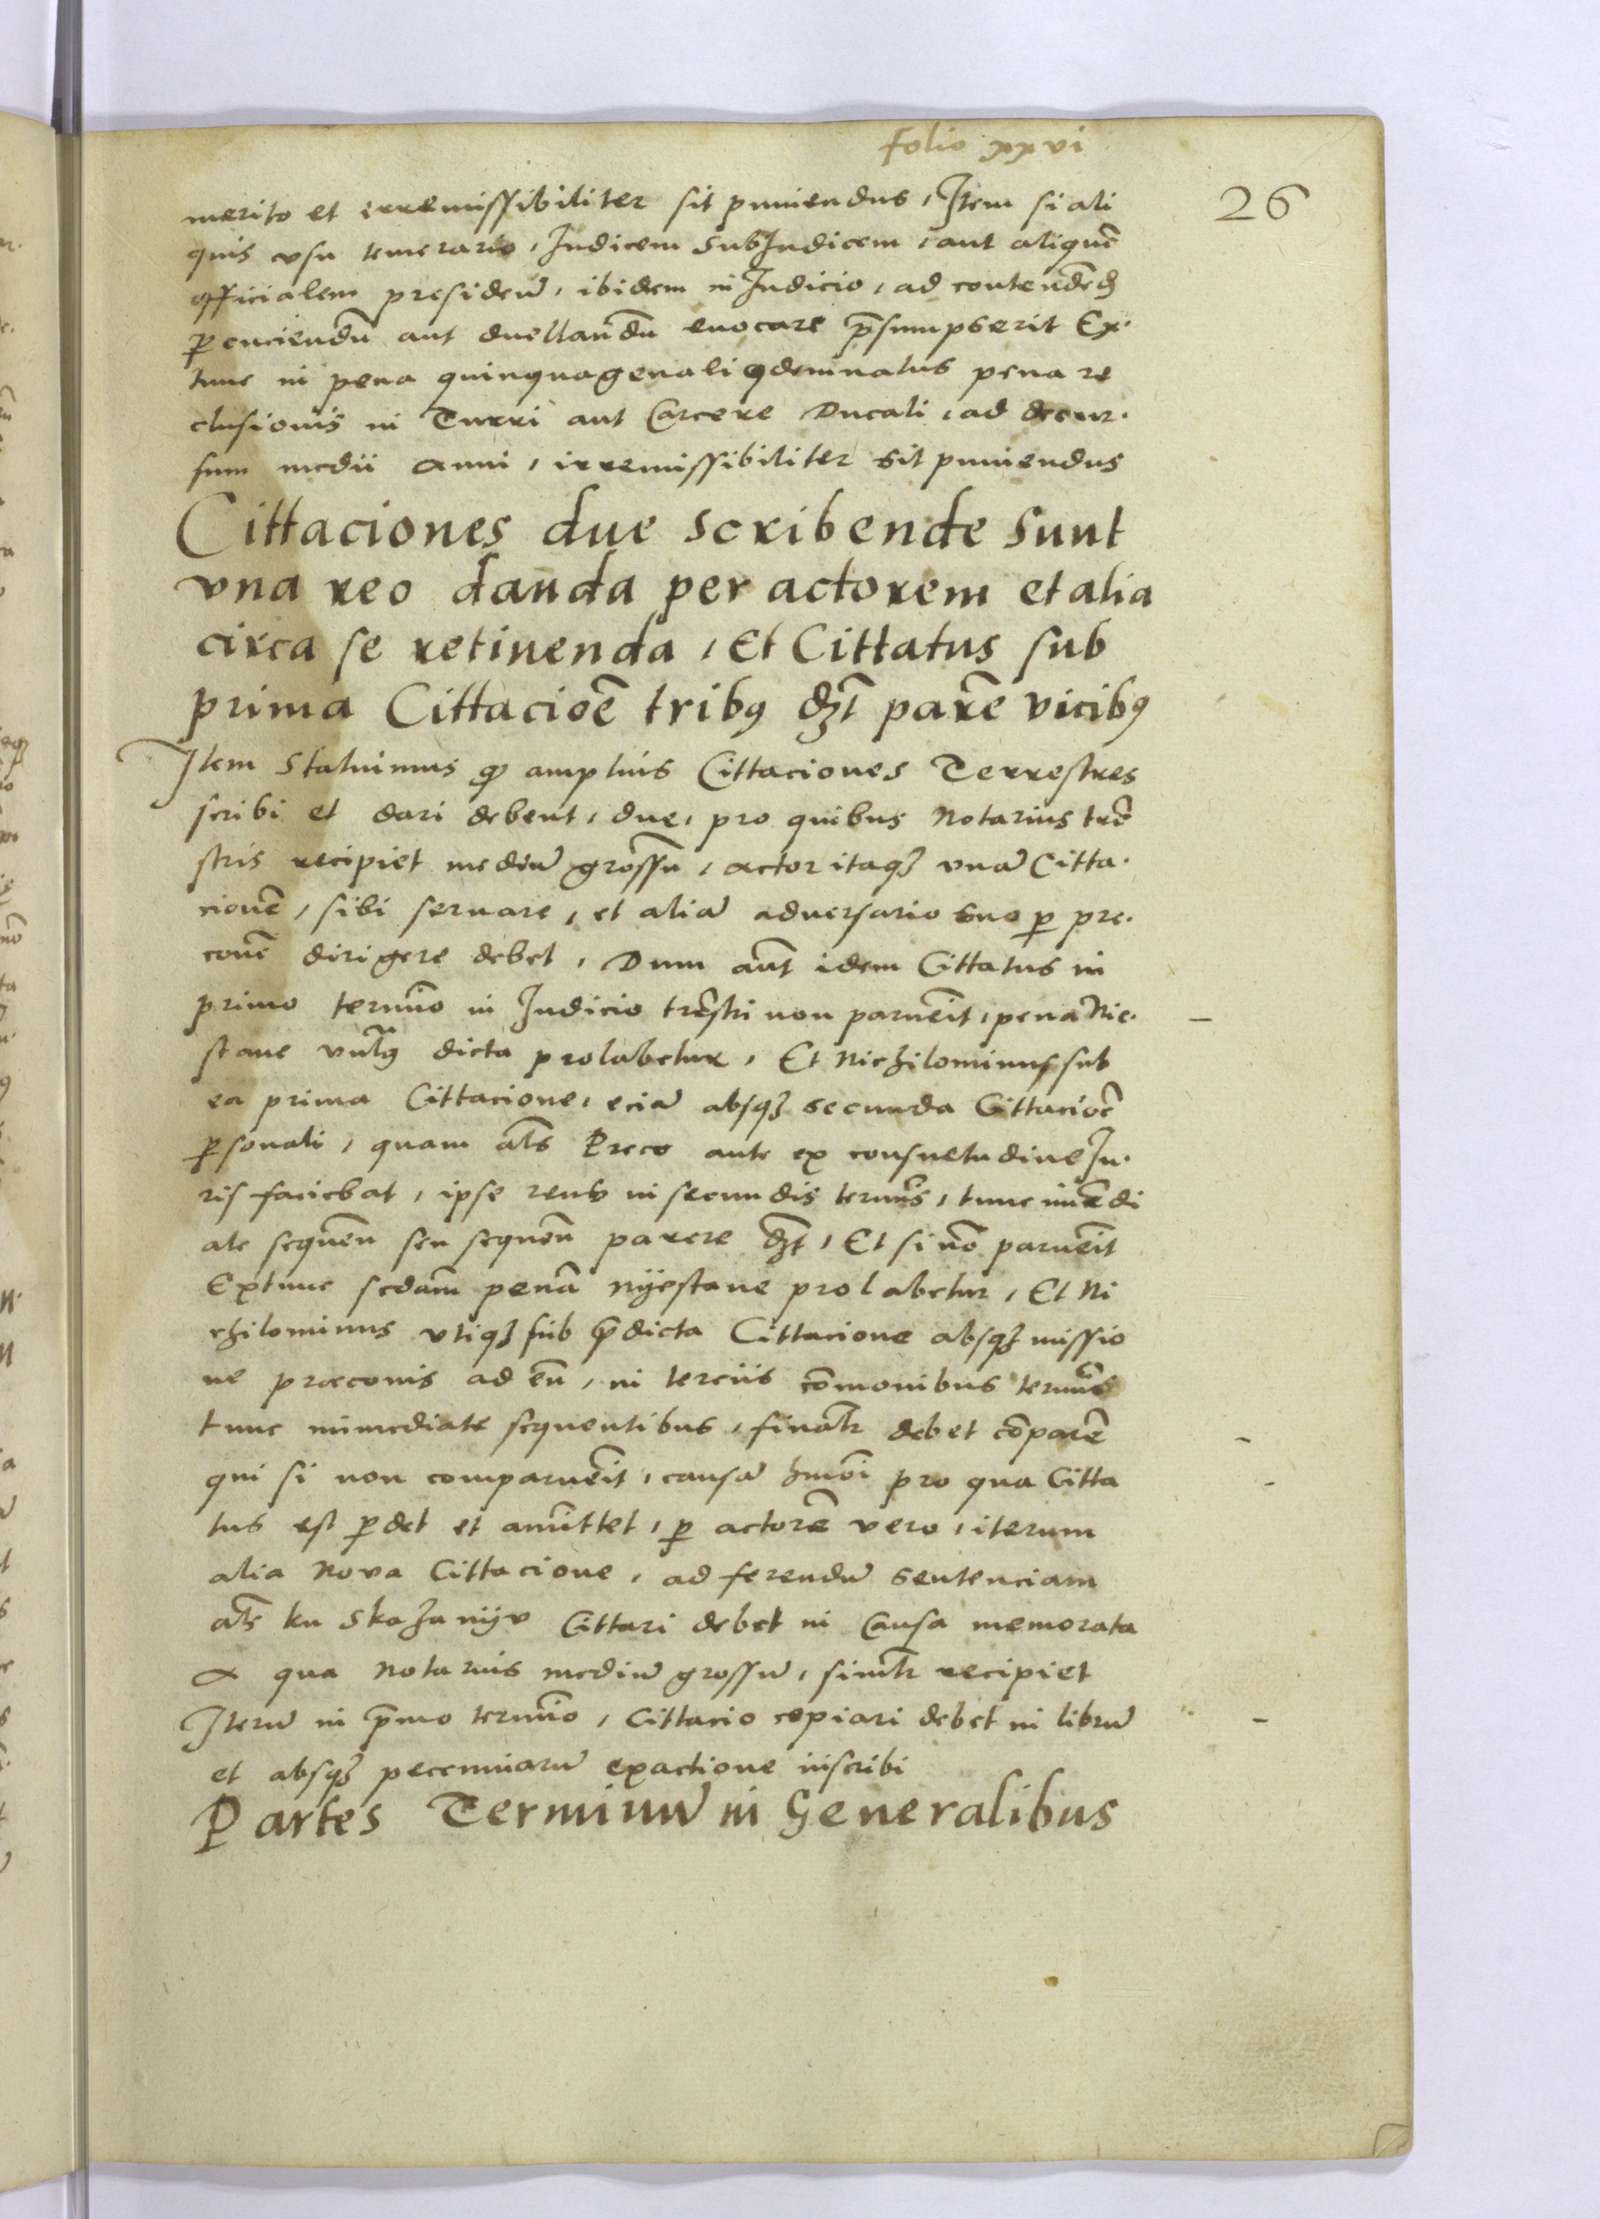 folio xxvi
26
merito et irremissibiliter sit puniendus, Item si ali
quis usu temerario, Iudicem SubIudicem, aut aliquē
officialem presidem̄, ibidem in Iudicio, ad contendēd
ꝑcuciendū aut duellandū euocare p̄sumpserit Ex.
tunc in pena quinquagenali ꝯdemnatus pena re
clusionis in Turri aut Carcere Ducali, ad decur.
sum medii anni, irremissibiliter sit puniendus
Cittaciones due scribende sunt
vna reo danda per actorem et alia
circa se retinenda, Et Cittatus sub
prima Cittacioē tribꝰ dꝫt parē vicibꝰ
Item Statuimus ꝙ amplius Cittaciones Terrestres
scribi et dari debent, due, pro quibus Notarius trē
stris recipiet mediū grossū, actor itaqꝫ vnā Citta.
cionē, sibi seruare, et aliā aduersario suo ꝑ pre.
conē dirigere debet, Dum aūt idem Cittatus in
primo termīo in Iudicio trēstri non paruēit, pena Nie.
stane vulꝰ dicta prolabetur, Et Nichilominus sub
ea prima Cittacione, eciā absqꝫ secunda Cittacioē
ꝑsonali, quam al̄s Preco ante ex consuetudine Iu.
ris faciebat, ipse reus in secundis termīs, tunc imēdi
ate sequēn seu sequēn parere dꝫt, Et si nō paruēit
Extunc scdam̄ penā nyestane prolabetur, Et Ni
chilominus vtiqꝫ sub p̄dicta Cittacione absqꝫ missio
ne præconis ad eū, in terciis cōmonibus termīs
tunc immediate sequentibus, finalr̄ debet cōparē
qui si non comparuēit, causā hmōi pro qua Citta
tus est ꝑdet et amīttet, ꝑ actorē vero, iterum
alia Nova Cittacione, ad ferendū sentenciam
al̄s ku Skazanyv Cittari debet in Causa memorata
A qua Notarius mediū grossū, similr̄ recipiet
Iterū in p̄mo termīo, Cittacio copiari debet in librū
et absqꝫ pecuniarū exactione inscribi
Partes Terminū in Generalibus